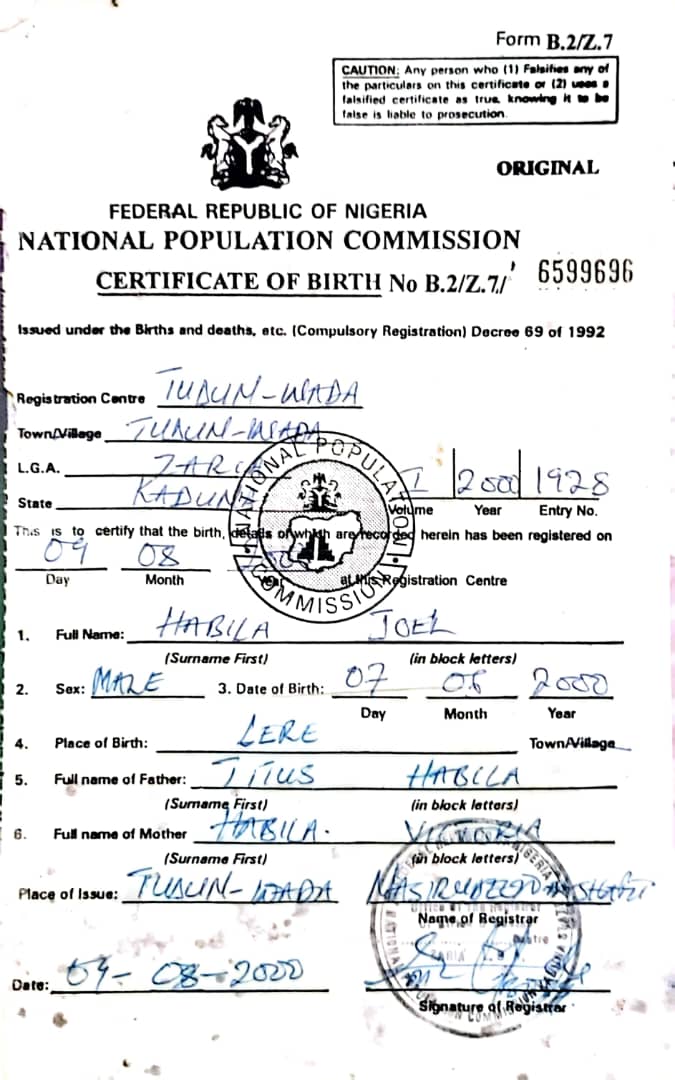 Form B.2/Z.7
CAUTION: Any person who (1) Falsifies any of
the particulars on this certificate or (2) uses a
falsified certificate as true, knowing it to be
false is liable to prosecution.
ORIGINAL
FEDERAL REPUBLIC OF NIGERIA
NATIONAL POPULATION COMMISSION
CERTIFICATE OF BIRTH No B.2/Z.7/ 6599696
Issued under the Births and deaths, etc. (Compulsory Registration) Decree 69 of 1992
Registration Centre TUDUN-WADA
Town/Village TUDUN-WADA
L.G.A. ZARIA
State KADUNA
I 2000 1928
Volume Year Entry No.
NATIONAL POPULATION COMMISSION
This is to certify that the birth, details of which are recorded herein has been registered on
09 08 2000
Day Month Year at this Registration Centre
1. Full Name: HABILA JOEL
(Surname First) (in block letters)
2. Sex: MALE 3. Date of Birth: 07 08 2000
Day Month Year
4. Place of Birth: LERE Town/Village
5. Full name of Father: TITUS HABILA
(Surname First) (in block letters)
6. Full name of Mother HABILA. VICTORIA
(Surname First) (in block letters)
Place of Issue: TUDUN-WADA
Name of Registrar
Date: 09-08-2000
Signature of Registrar